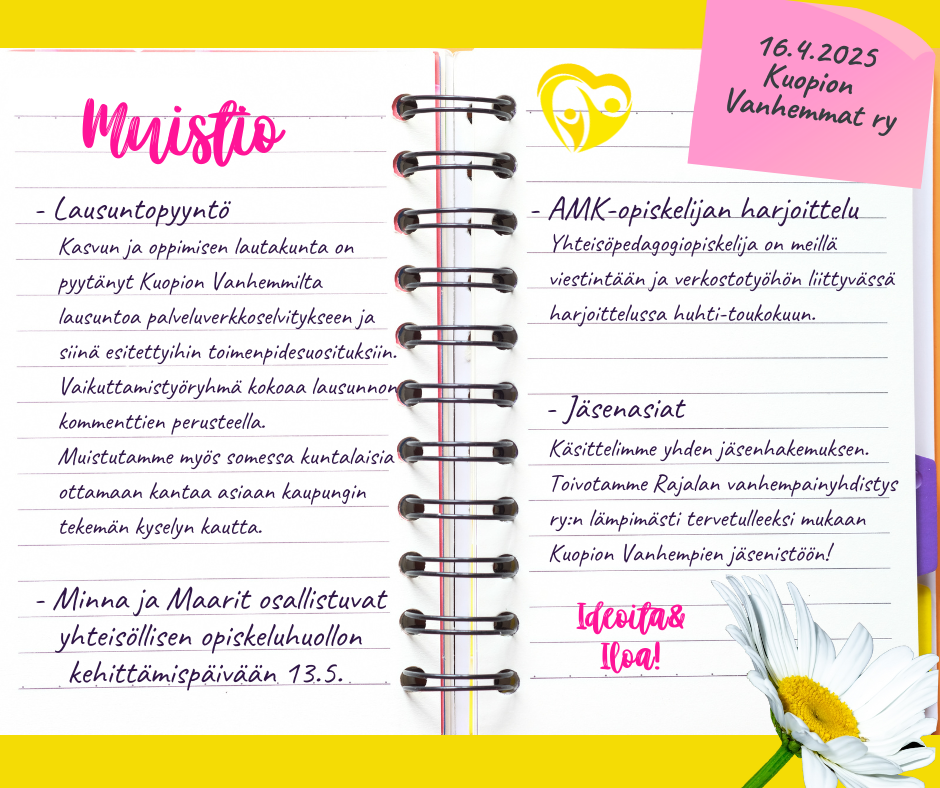 Muistio
- Lausuntopyyntö
Kasvun ja oppimisen lautakunta on
pyytänyt Kuopion Vanhemmilta
lausuntoa palveluverkkoselvitykseen ja
siinä esitettyihin toimenpidesuosituksiin.
Vaikuttamistyöryhmä kokoaa lausunnon
kommenttien perusteella.
Muistutamme myös somessa kuntalaisia
ottamaan kantaa asiaan kaupungin
tekemän kyselyn kautta.
- Minna ja Maarit osallistuvat
yhteisöllisen opiskeluhuollon
kehittämispäivään 13.5.
16.4.2025
Kuopion
Vanhemmat ry
- AMK-opiskelijan harjoittelu
Yhteisöpedagogiopiskelija on meillä
viestintään ja verkostotyöhön liittyvässä
harjoittelussa huhti-toukokuun.
- Jäsenasiat
Käsittelimme yhden jäsenhakemuksen.
Toivotamme Rajalan vanhempainyhdistys
ry:n lämpimästi tervetulleeksi mukaan
Kuopion Vanhempien jäsenistöön!
Ideoita&
Iloa!